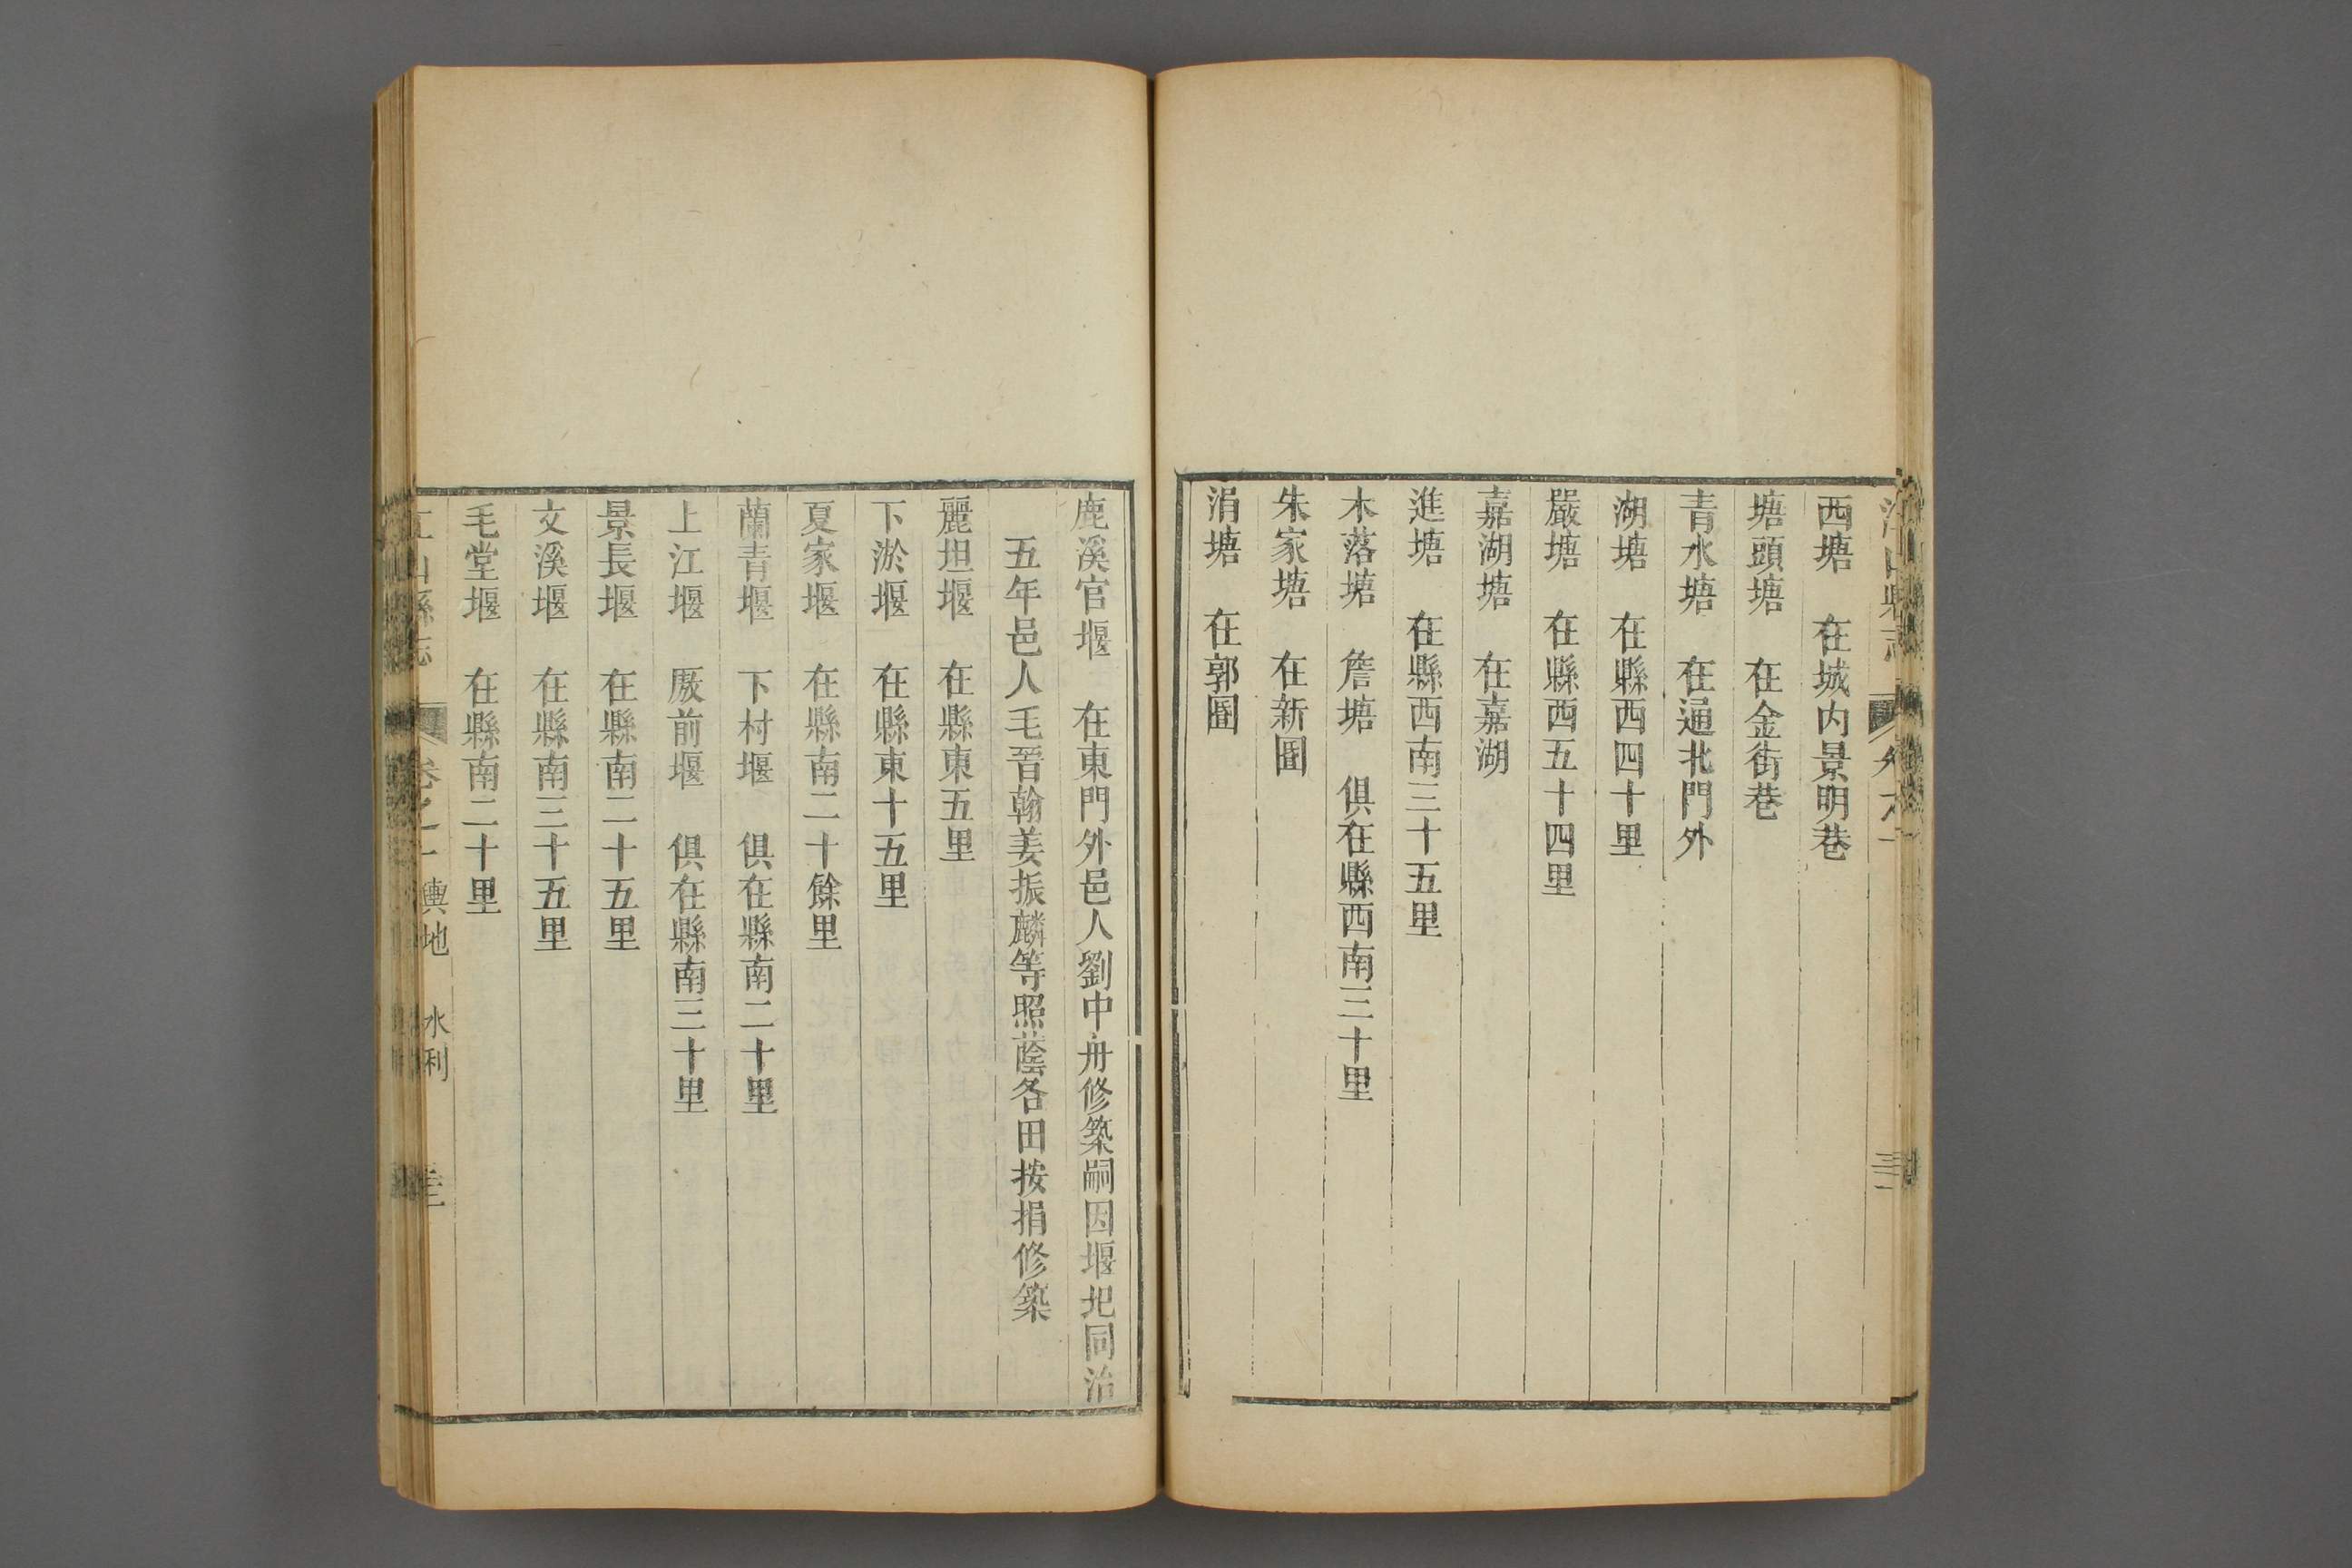 西塘　在城内景明巷
塘頭塘　在金街巷
青水塘　在通北門外
湖塘　在縣西四十里
嚴塘　在縣西五十四里
嘉湖塘　在嘉湖
進塘　在縣西南三十五里
木落塘　詹塘　俱在縣西南三十里
朱家塘　在新圖
涓塘　在郭圖
鹿溪官堰　在東門外邑人劉中舟修築嗣因堰圯同治
五年邑人毛晉翰姜振麟等照蔭各田按捐修築
麗坦堰　在縣東五里
下淤堰　在縣東十五里
夏家堰　在縣南二十餘里
蘭青堰　下村堰　俱在縣南二十里
上江堰　厫前堰　俱在縣南三十里
景長堰　在縣南二十五里
文溪堰　在縣南三十五里
毛堂堰　在縣南二十里
山縣志　卷之一　輿地　水利